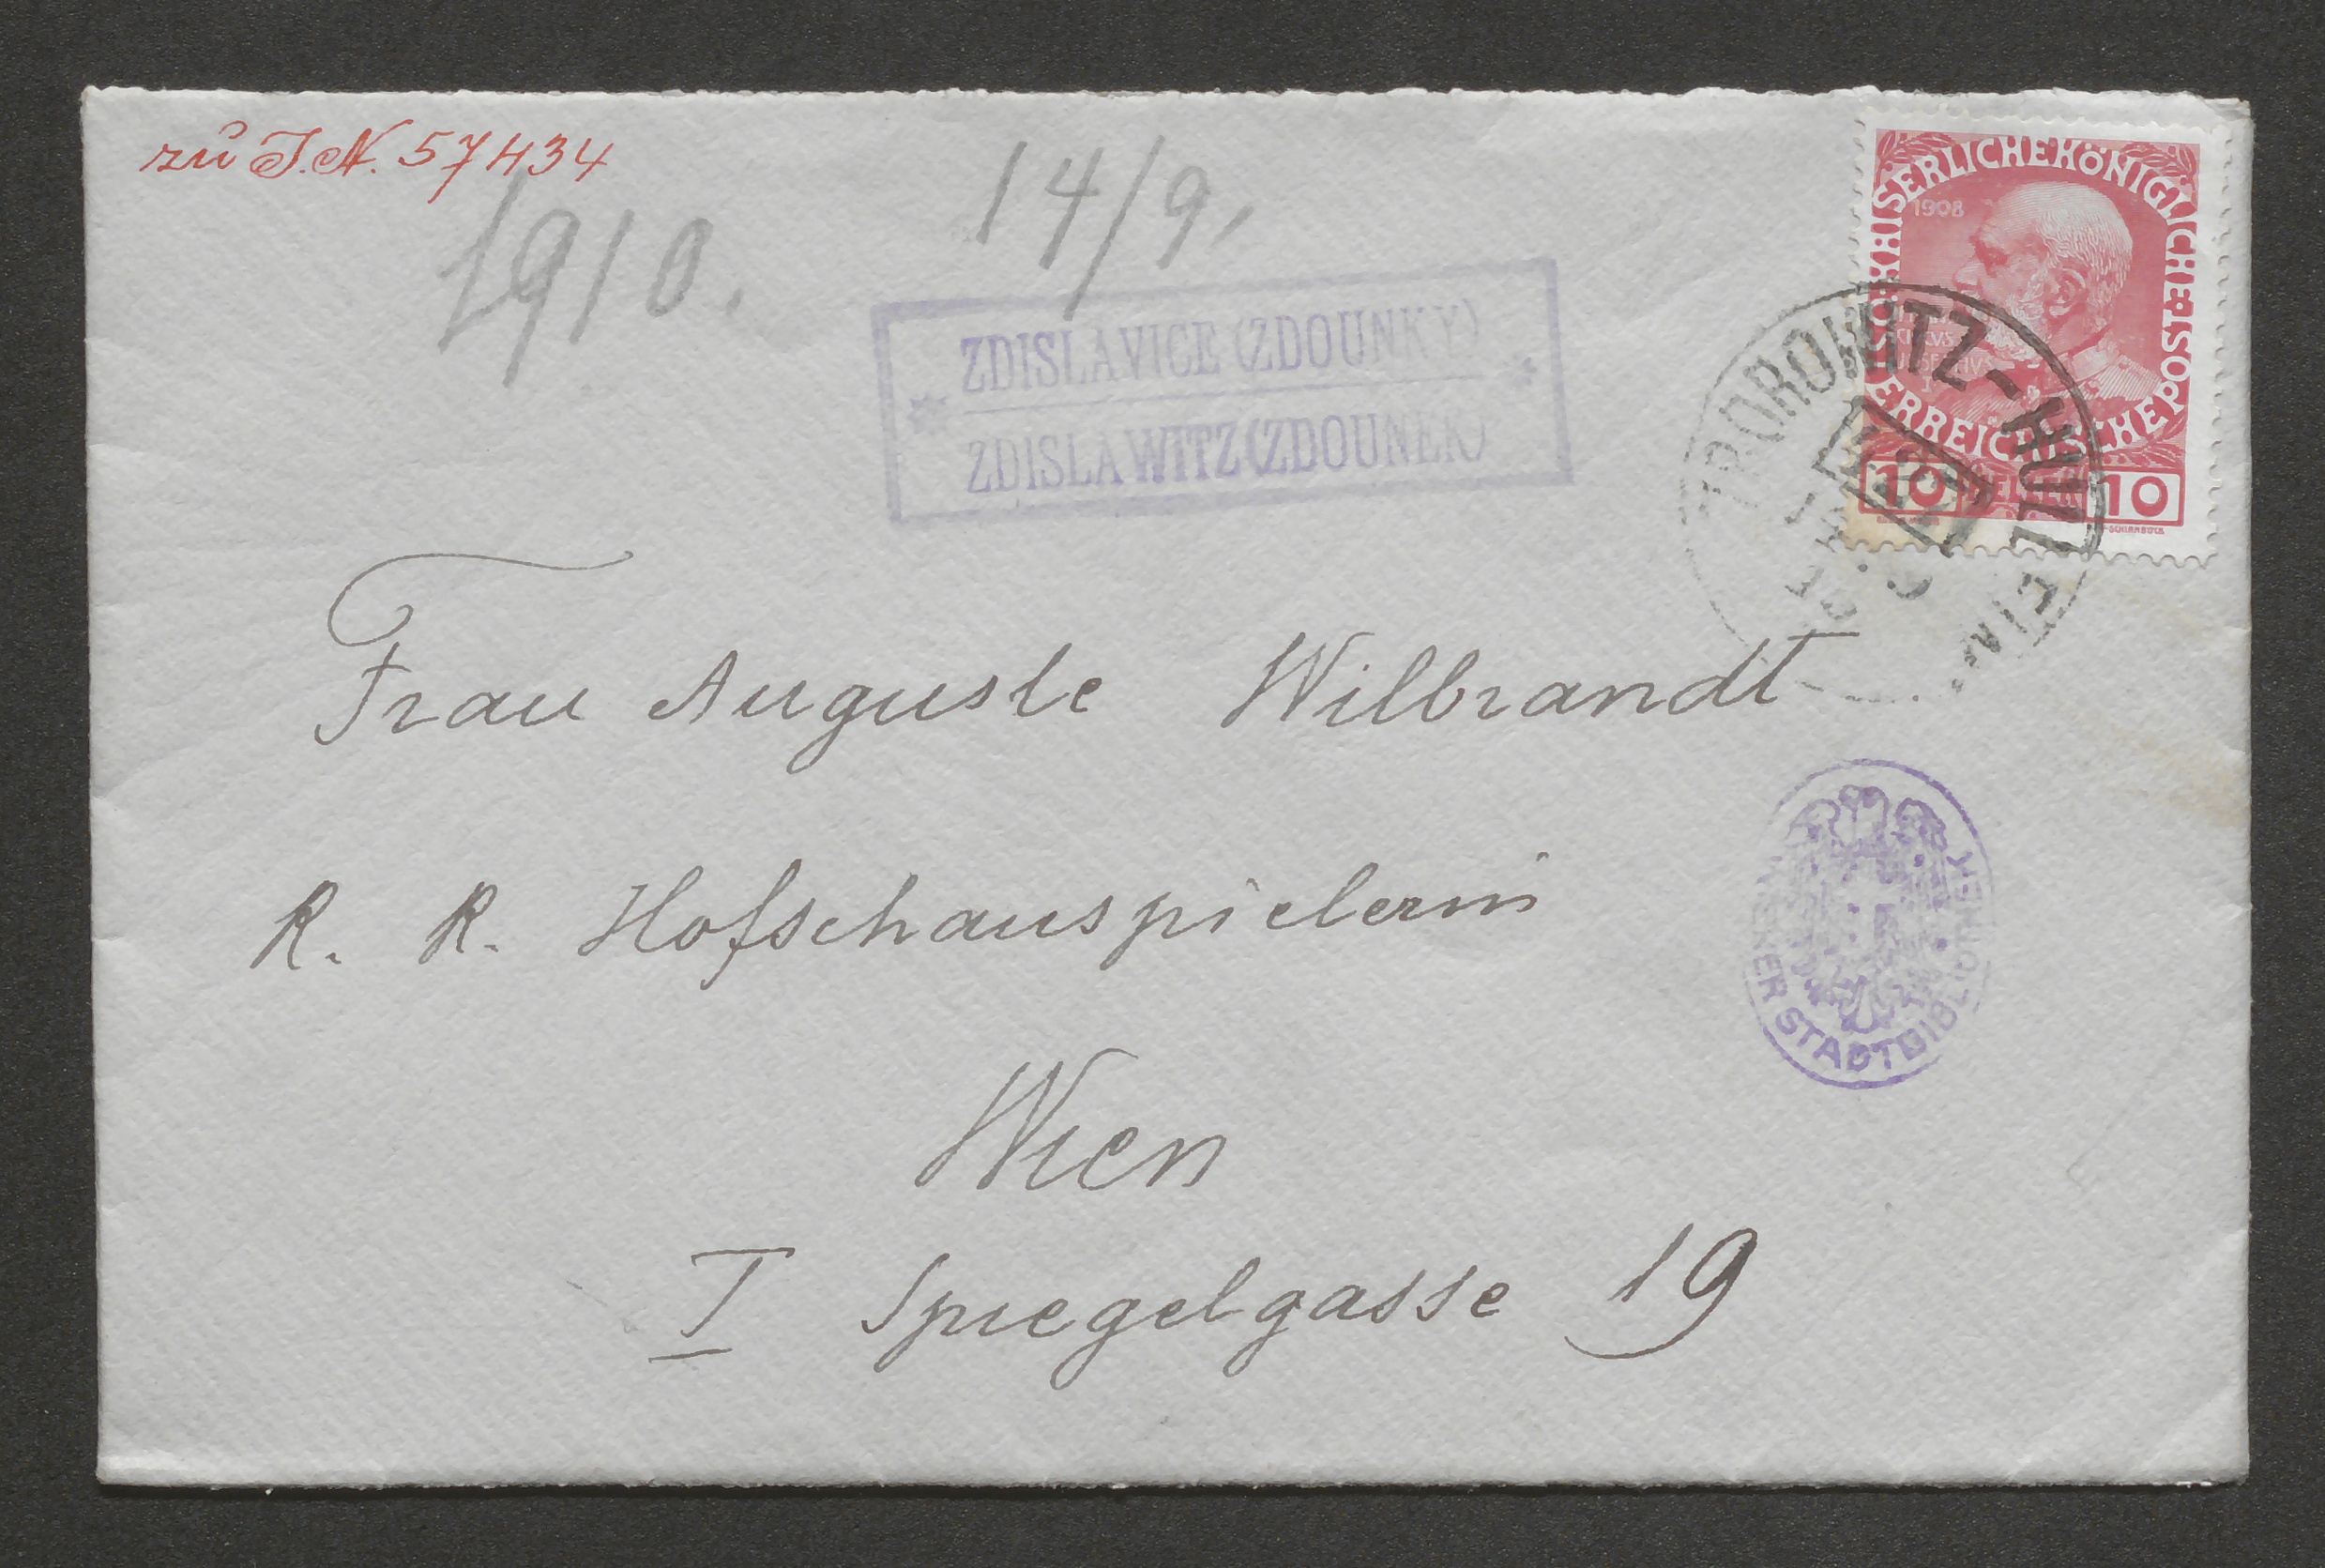 zu I.N. 57434
1910. 14/9.
ZDISLAVICE (ZDOUNKY)
ZDISLAWITZ (ZDOUNEK)
KAISERLICHE KÖNIGLICHE ÖSTERREICHISCHE POST
1908
10 HELLER 10
Frau Auguste Wilbrandt
K. K. Hofschauspielerin
Wien
I Spiegelgasse 19
WIENER STADTBIBLIOTHEK